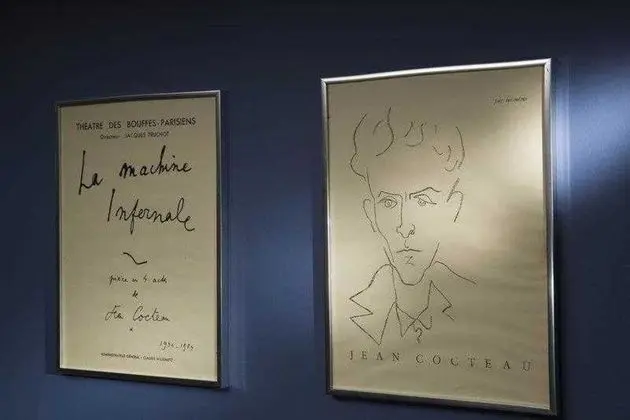 THEATRE DES BOUFFES-PARISIENS
Directeur: JACQUES TRUCHOT
La machine
Infernale
pièce en 4 actes
de
Jean Cocteau
1934-1954
ADMINISTRATEUR GÉNÉRAL:
JEAN COCTEAU